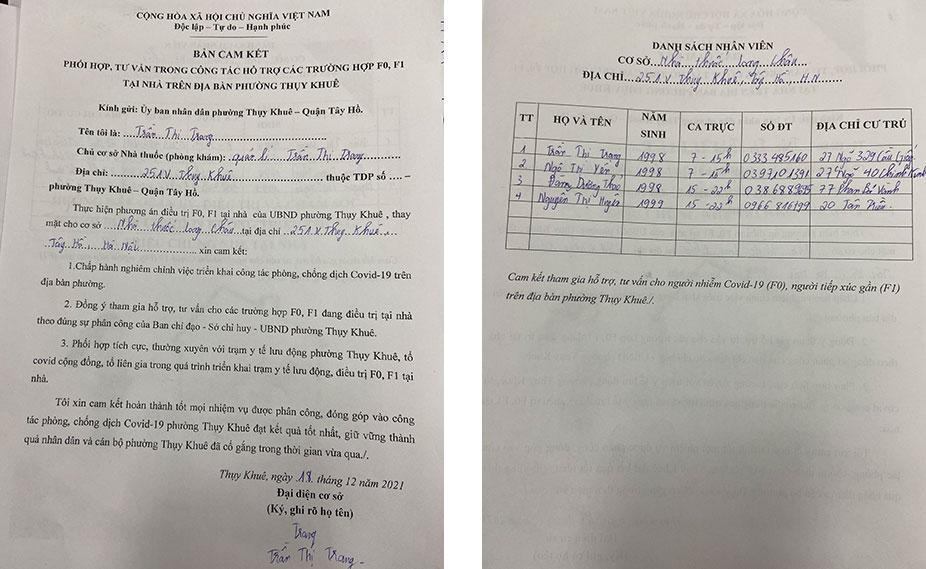 CỘNG HÒA XÃ HỘI CHỦ NGHĨA VIỆT NAM
Độc lập – Tự do – Hạnh phúc
BẢN CAM KẾT
PHỐI HỢP, TƯ VẤN TRONG CÔNG TÁC HỖ TRỢ CÁC TRƯỜNG HỢP F0, F1
TẠI NHÀ TRÊN ĐỊA BÀN PHƯỜNG THỤY KHUÊ
Kính gửi: Ủy ban nhân dân phường Thụy Khuê – Quận Tây Hồ.
Tên tôi là: Trần Thị Trang
Chủ cơ sở Nhà thuốc (phòng khám): quản lí Trần Thị Trang
Địa chỉ: 251.V. Thụy Khuê thuộc TDP số .... –
phường Thụy Khuê – Quận Tây Hồ.
Thực hiện phương án điều trị F0, F1 tại nhà của UBND phường Thụy Khuê , thay
mặt cho cơ sở Nhà thuốc Long Châu tại địa chỉ 251.V. Thụy Khuê,
Tây Hồ, Hà Nội xin cam kết:
1.Chấp hành nghiêm chỉnh việc triển khai công tác phòng, chống dịch Covid-19 trên
địa bàn phường.
2. Đồng ý tham gia hỗ trợ, tư vấn cho các trường hợp F0, F1 đang điều trị tại nhà
theo đúng sự phân công của Ban chỉ đạo - Sở chỉ huy - UBND phường Thụy Khuê.
3. Phối hợp tích cực, thường xuyên với trạm y tế lưu động phường Thụy Khuê, tổ
covid cộng đồng, tổ liên gia trong quá trình triển khai trạm y tế lưu động, điều trị F0, F1 tại
nhà.
Tôi xin cam kết hoàn thành tốt mọi nhiệm vụ được phân công, đóng góp vào công
tác phòng, chống dịch Covid-19 phường Thụy Khuê đạt kết quả tốt nhất, giữ vững thành
quả nhân dân và cán bộ phường Thụy Khuê đã cố gắng trong thời gian vừa qua./.
Thụy Khuê, ngày 18 tháng 12 năm 2021
Đại diện cơ sở
(Ký, ghi rõ họ tên)
Trang
Trần Thị Trang
DANH SÁCH NHÂN VIÊN
CƠ SỞ Nhà thuốc Long Châu
ĐỊA CHỈ 251.V. Thụy Khuê, Tây Hồ, H.N
TT HỌ VÀ TÊN NĂM SINH CA TRỰC SỐ ĐT ĐỊA CHỈ CƯ TRÚ
1 Trần Thị Trang 1998 7 - 15h 0333 485160 27 Ngõ 329 Cầu Giấy
2 Ngô Thị Yến 1998 7 - 15h 0397101391 27 Ngõ 40
3 Dương Thảo 1998 15 - 22h 77 Phan Bá Vành
4 Nguyễn Thị 1999 15 - 22h 0966 816199 20
Cam kết tham gia hỗ trợ, tư vấn cho người nhiễm Covid-19 (F0), người tiếp xúc gần (F1)
trên địa bàn phường Thụy Khuê./.